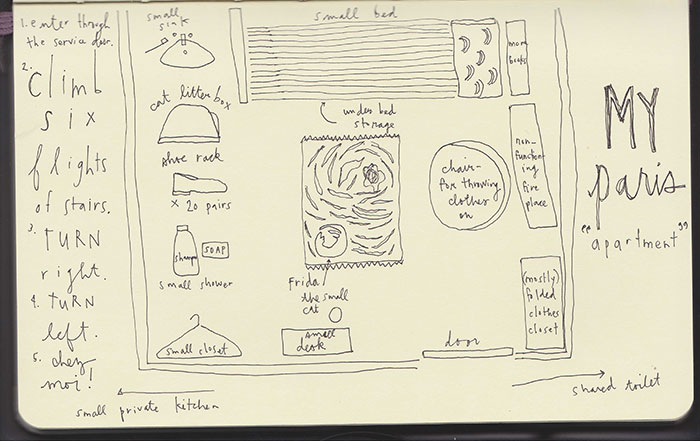 1. enter through
the service door.
2.
Climb
six
flights
of stairs.
3.
TURN
right.
4. TURN
left.
5. chez
moi!
small
sink
cat litter box
shoe rack
x 20 pairs
shamp
SOAP
small shower
small closet
small bed
under bed
storage
Frida
the small
cat
small
desk
more
books
chair-
for throwing
clothes
on
non-
function
ing
fire
place
(mostly)
folded
clothes
closet
door
small private kitchen
shared toilet
MY
paris
"apartment"